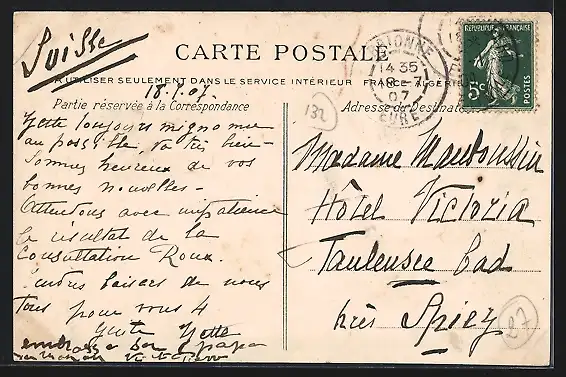 Suisse
CARTE POSTALE
A UTILISER SEULEMENT DANS LE SERVICE INTÉRIEUR FRANCE ALGÉRIE
18.7.07.
Partie réservée à la Correspondance
Adresse du Destinataire
REPUBLIQUE FRANÇAISE
5c
POSTES
14 35
18-7
07
EURE
132
Yette toujours mignonne
au possible, va très bien -
Sommes heureux de vos
bonnes nouvelles -
Attendons avec impatience
le résultat de la
Consultation Roux.
Tendres baisers de nous
tous pour vous 4
Yette
Madame Mauboussin
Hôtel Victoria
Faulensee bad
près Spiez
27
papa